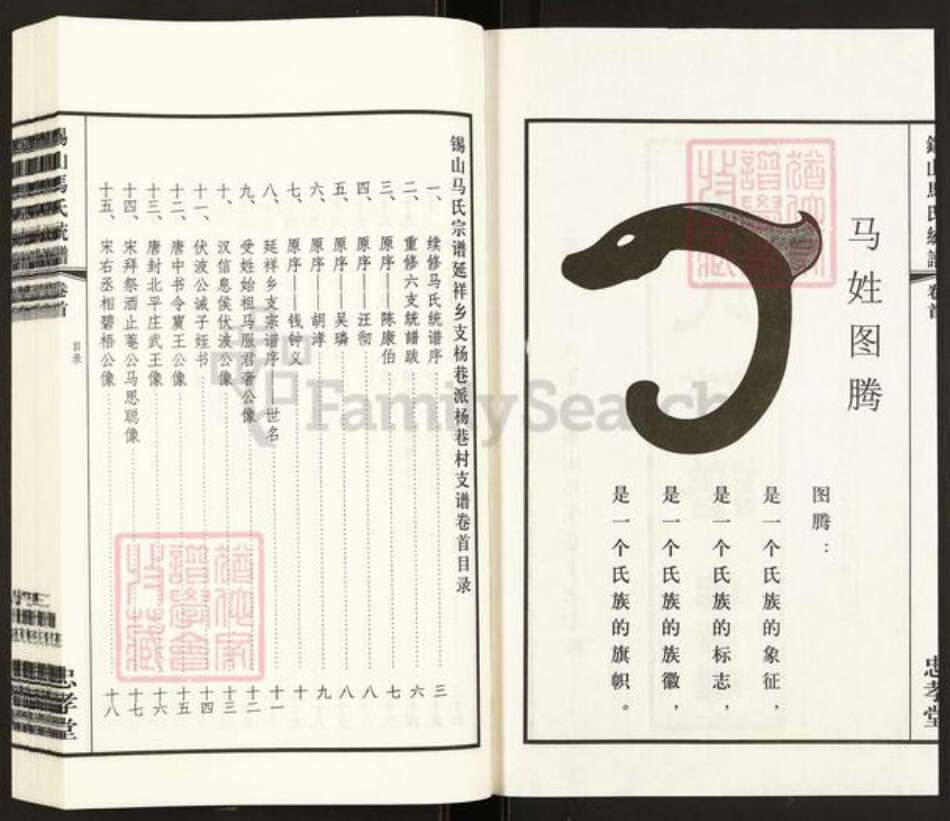 马姓图腾
图腾：
是一个氏族的象征，
是一个氏族的标志，
是一个氏族的族徽，
是一个氏族的旗帜。
忠孝堂
锡山马氏宗谱延祥乡支杨巷派杨巷村支谱卷首目录
一、续修马氏统谱序 三
二、重修六支統譜跋 六
三、原序——陈康伯 七
四、原序——汪彻 八
五、原序——吴璘 八
六、原序——胡涍 九
七、原序——钱钟义 十
八、延祥乡支宗谱序——世名 十一
九、受姓始祖马服君奢公像 十二
十、汉信息侯伏波公像 十三
十一、伏波公诫子姪书 十四
十二、唐中书令賓王公像 十五
十三、唐封北平庄武王像 十六
十四、宋拜祭酒止菴公马恩聪像 十七
十五、宋右丞相碧梧公像 十八
卷首
目录
忠孝堂
猶他家譜學會收藏
FamilySearch